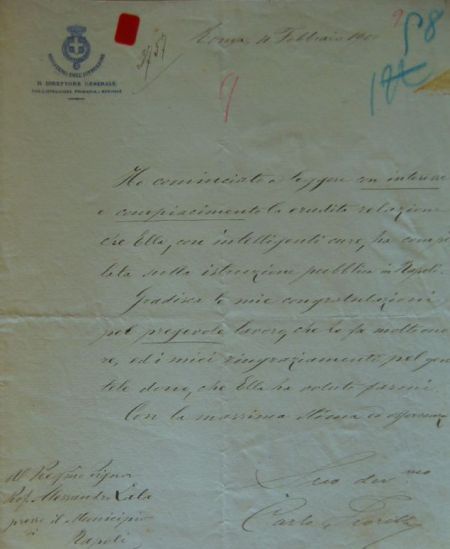 MINISTERO DELL'ISTRUZIONE
IL DIRETTORE GENERALE
Roma, 4 Febbraio
9
58
9
Ho cominciato a leggere con interesse
e compiacimento la erudita relazione
che Ella, con intelligenti cure, ha comp
lata sulla istruzione pubblica in Napoli.
Gradisca le mie congratulazioni
pel pregevole lavoro, che le fa molto ono
re, ed i miei ringraziamenti pel gen
tile dono, che Ella ha voluto farmi.
Con la massima stima ed osservanza
Suo dev.mo
Carlo
Al
Prof. Alessandro Lala
presso il Municipio
Napoli